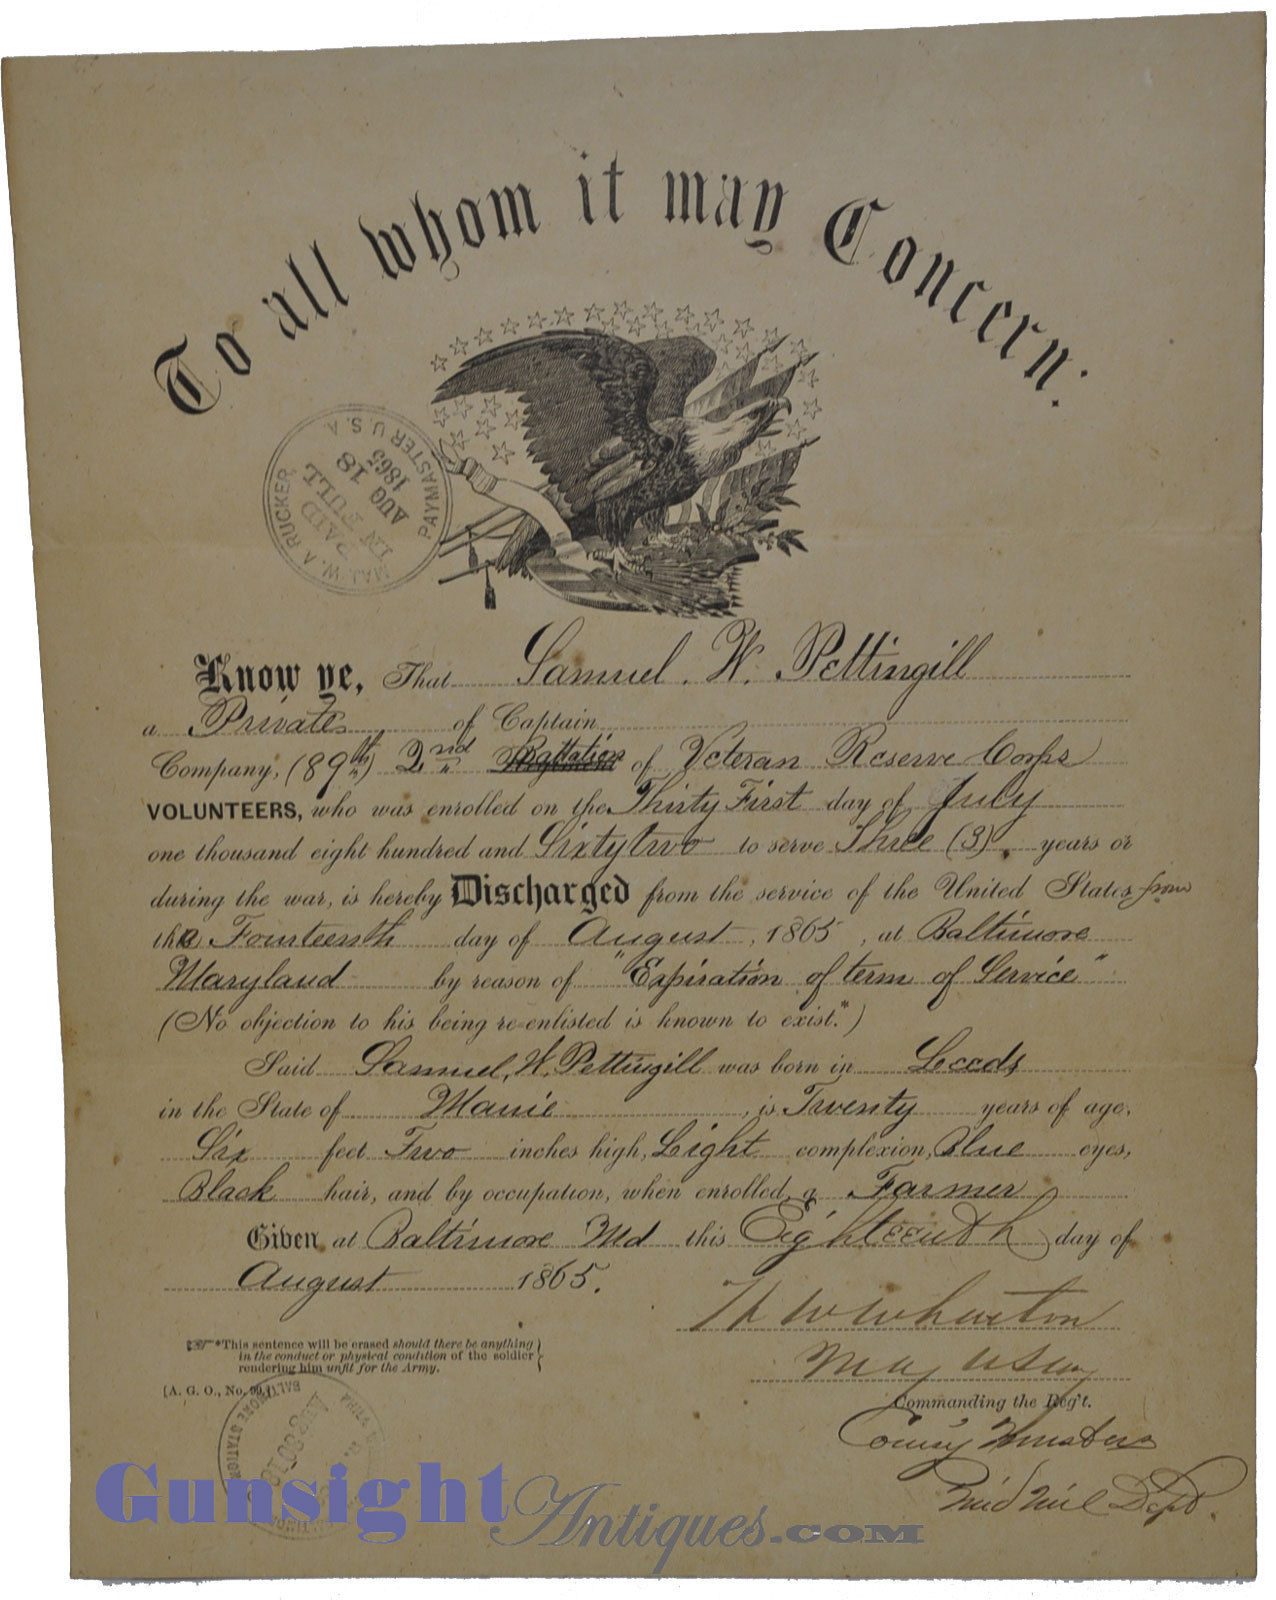 To all whom it may Concern:
MAJ. W. A. RUCKER, PAYMASTER U.S.A.
PAID
IN FULL
AUG 18
1865
Know ye, That Samuel. W. Pettingill
a Private of Captain
Company, (89th) 2nd Battalion of Veteran Reserve Corps
VOLUNTEERS, who was enrolled on the Thirty First day of July
one thousand eight hundred and Sixty two to serve Three (3) years or
during the war, is hereby Discharged from the service of the United States from
the Fourteenth day of August, 1865, at Baltimore
Maryland by reason of "Expiration of term of Service"
(No objection to his being re-enlisted is known to exist.*)
Said Samuel, W. Pettingill was born in Leeds
in the State of Manie, is Twenty years of age,
Six feet Two inches high, Light complexion, Blue eyes,
Black hair, and by occupation, when enrolled, a Farmer
Given at Baltimore Md this Eighteenth day of
August 1865.
Wharton
*This sentence will be erased should there be anything
in the conduct or physical condition of the soldier
rendering him unfit for the Army.
Commanding the Reg't.
[A. G. O., No. 99.]
BALTIMORE STATION
Gunsight
Antiques.COM
Mid Mil Dept.